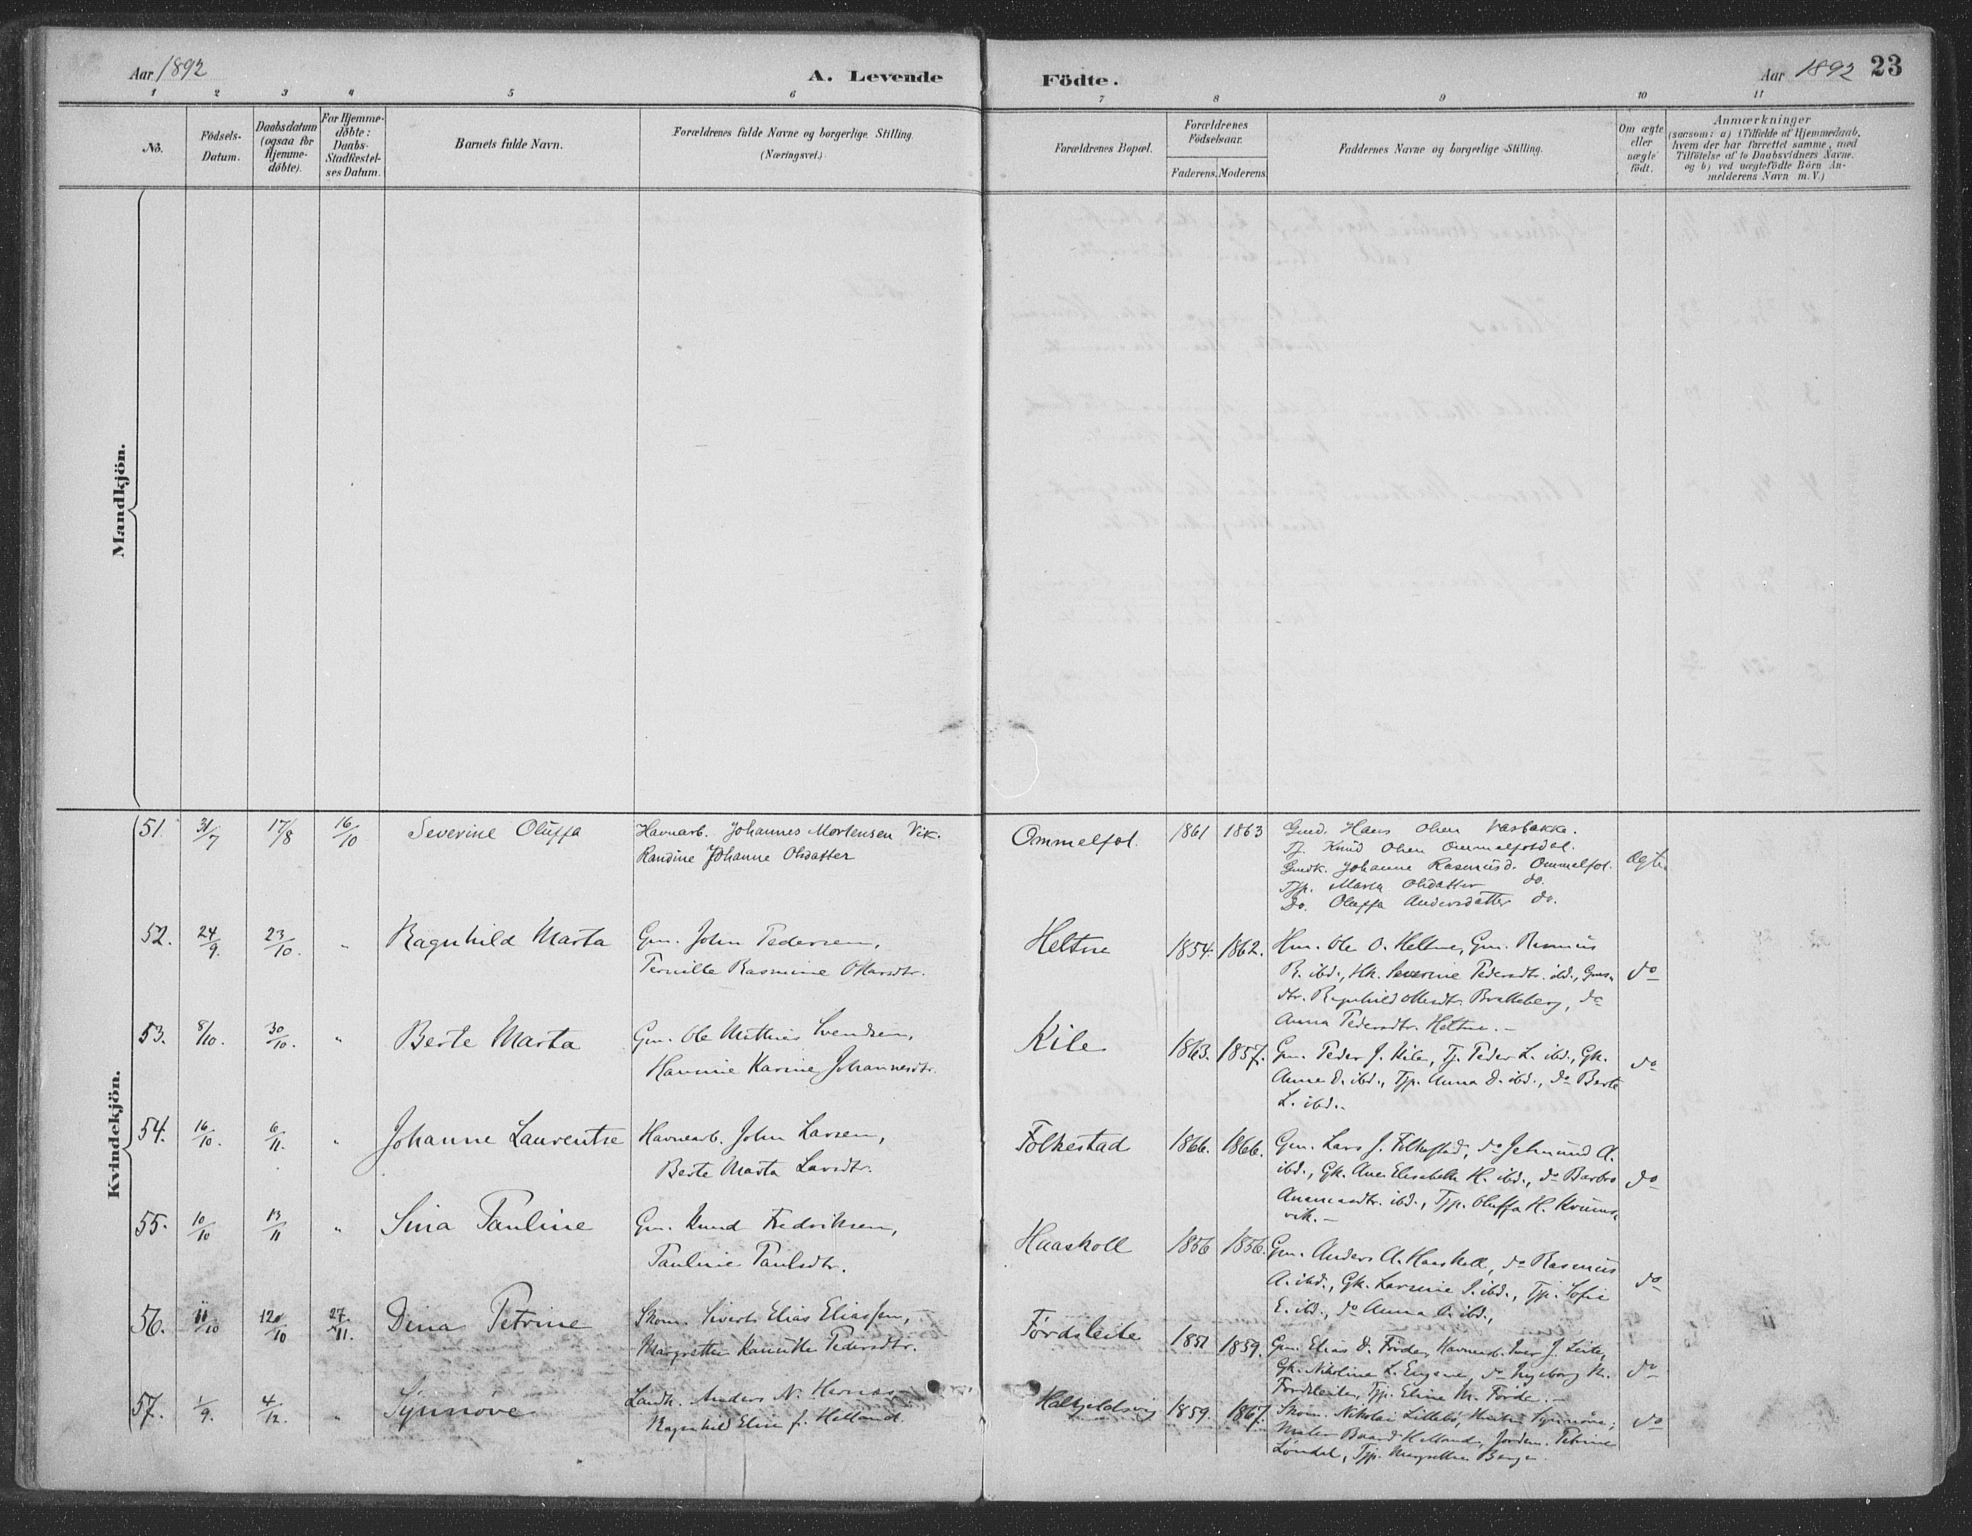 Aar 1892
A. Levende Födte.
Aar 1892 23
1 2 3 4 5 6 7 8 9 10 11
No.
Födsels-Datum.
Daabsdatum (ogsaa för Hjemmedøbte).
For Hjemmedøbte: Daabs-Stadfæstelses Datum.
Barnets fulde Navn.
Forældrenes fulde Navne og borgerlige Stilling.
(Næringsvei.)
Forældrenes Bopæl.
Forældrenes Födselsaar.
Faderens. Moderens.
Faddernes Navne og borgerlige Stilling.
Om ægte eller uægte født.
Anmærkninger
(saasom: a) i Tilfælde af Hjemmedaab,
hvem der har forrettet samme, med
Tilføielse af to Daabsvidners Navne,
og b) ved uægtefödte Börn Anmelderens Navn m. V.)
Mandkjön.
Kvindekjön.
51. 31/7 17/8 16/10 Severine Oluffa Havnarb. Johannes Mortensen Vik. Ommelfot. 1861 1863 Gmd. Hans Olsen Vasbakke.
Randine Johanne Olsdatter
Tj. Knud Olsen Ommelfotdal.
Gmdk. Johanne Rasmusd. Ommelfot. ægte
Tjp. Marta Olsdatter do.
Do. Oluffa Andersdatter do.
52. 24/9 23/10. " Ragnhild Marta Gm. John Pedersen, Heltne 1854. 1862. Hm. Ole O. Heltne, Gm. Rasmus
Pernille Rasmine
R. ibd., Hk. Severine Pedersdtr. ibd., do
dtr. Ragnhild Bratteberg, do
Anna Pedersdtr. Heltne.-
53. 8/10. 30/10. " Berte Marta Gm. Ole Mathias Svendsen, Kile 1863. 1857. Gm. Peder J. Kile, Tj. Peder L. ibd., Gk. do
Karine Johannesdtr.
Anne D. ibd., Tjp. Anna D. ibd., do Berte
L. ibd..
54. 16/10. 6/11. " Johanne Laurentse Havnearb. John Larsen, Folkestad 1866. 1866. Gm. Lars J. Folkestad, do A.
Berte Marta Larsdtr.
ibd., Gk. Ane Elisabeth H. ibd., do Barbro do
ibd., Tjp. Oluffa H. Krums-
vik.-
55. 10/10 13/11 " Sina Pauline Gm. Knud Fredriksen, Haaskoll 1856 1856. Gm. Anders A. Haaskoll, do Rasmus
Pauline Paulsdtr.
A. ibd., Gk. ibd., Tjp. Sofie do
E. ibd., do Anna A. ibd.,
56. 11/10 12/10 27/11. Dina Petrine Skom. Sivert Elias Eliassen, Førdsleite 1851 1859. Gm. Elias D. Førde, Havnearb. Iver J. Leite,
Margrethe Pedersdtr.
Gk. Nikoline L. do Ingeborg M. do
Førdsleite, Tjp. Eline M. Førde.-
57. 1/9. 4/12. " Synnøve Landh. Anders N. 1859. 1867. Skom. Nikolai Lillebø, Synnøve, do
Ragnhild Elin f. Helland.
Maler Baard Helland, Jordm. Petrine
Løndal, Tjp. Margrethe